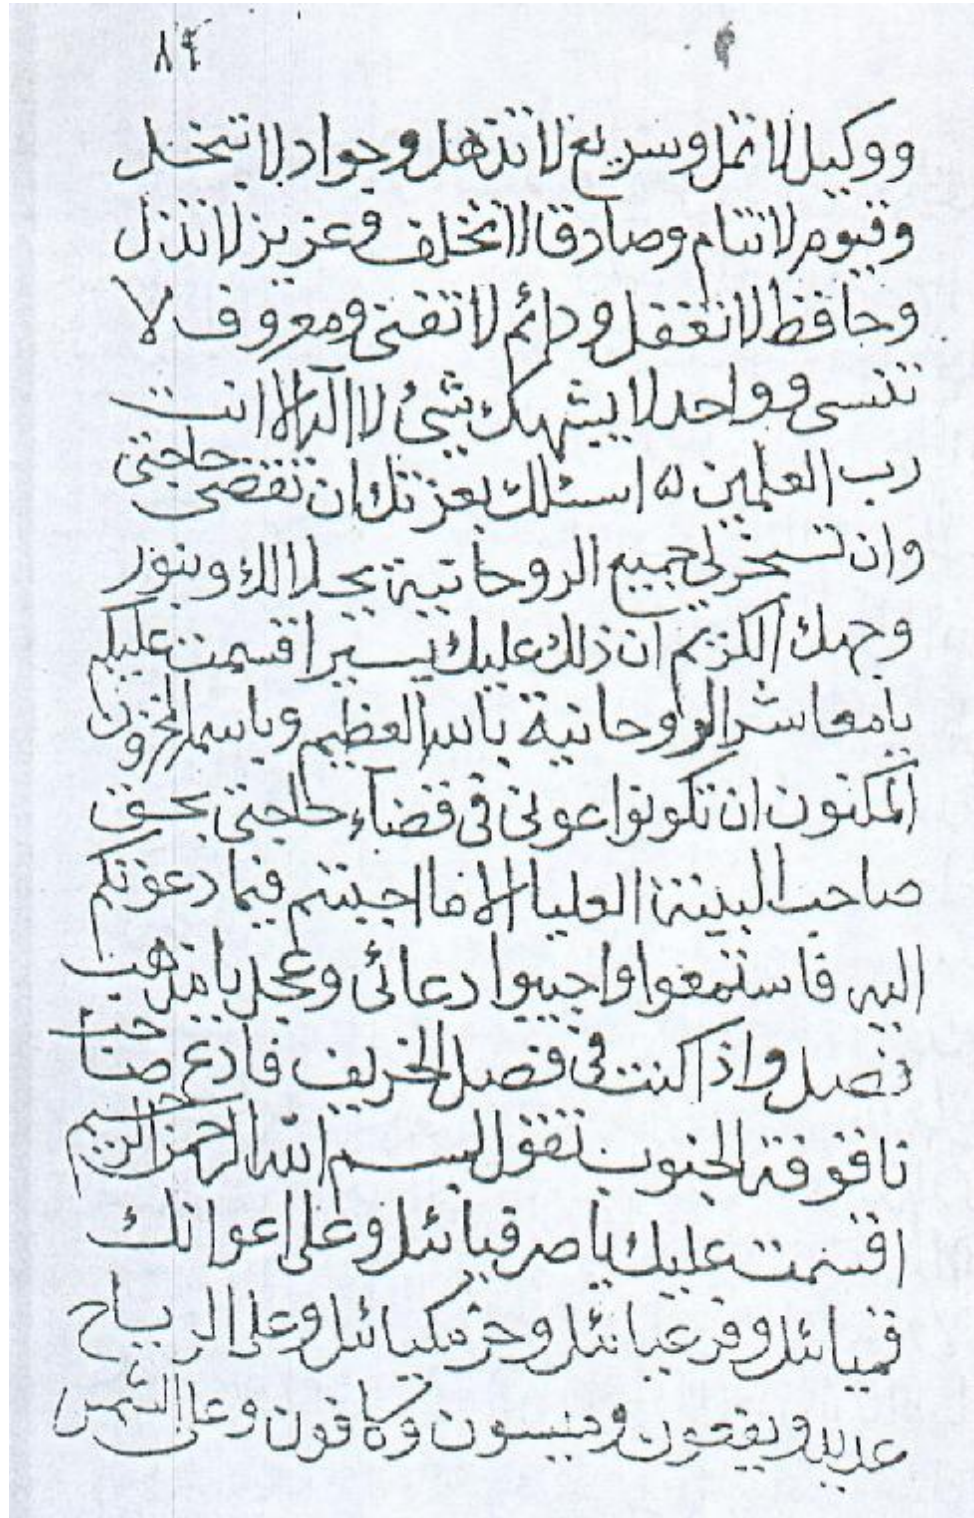 ٨٤
ووكيل لا تمل وسريع لا تذهل وجواد لا تبخل
وقيوم لا تنام وصادقا لا تخلف وعزيز لا تذل
وحافظ لا تغفل ودائم لا تفنى ومعروف لا
تنسى وواحد لا يشبهك شئ لا اله الا انت
رب العلمين اسئلك بعزتك ان تقضى حاجتى
وان تسخر لى جميع الروحانية بجلالك وبنور
وجهك الكريم ان ذلك عليك يسير اقسمت عليكم
يا معاشر الروحانية باسم العظيم وباسم المخزون
المكنون ان تكونوا عونى فى قضاء حاجتى بحق
صاحب البينة العليا الا ما اجبتم فيما دعوتكم
اليه فاستمعوا واجيبوا دعائى وعجل يا مذهب
فصل واذا كنت فى فصل الخريف فادع صاحب
ناقوفة الجنوب تقول بسم الله الرحمن الرحيم
اقسمت عليك يا صرفيائيل وعلى اعوانك
وعلى الرياح
وعلى الشمس